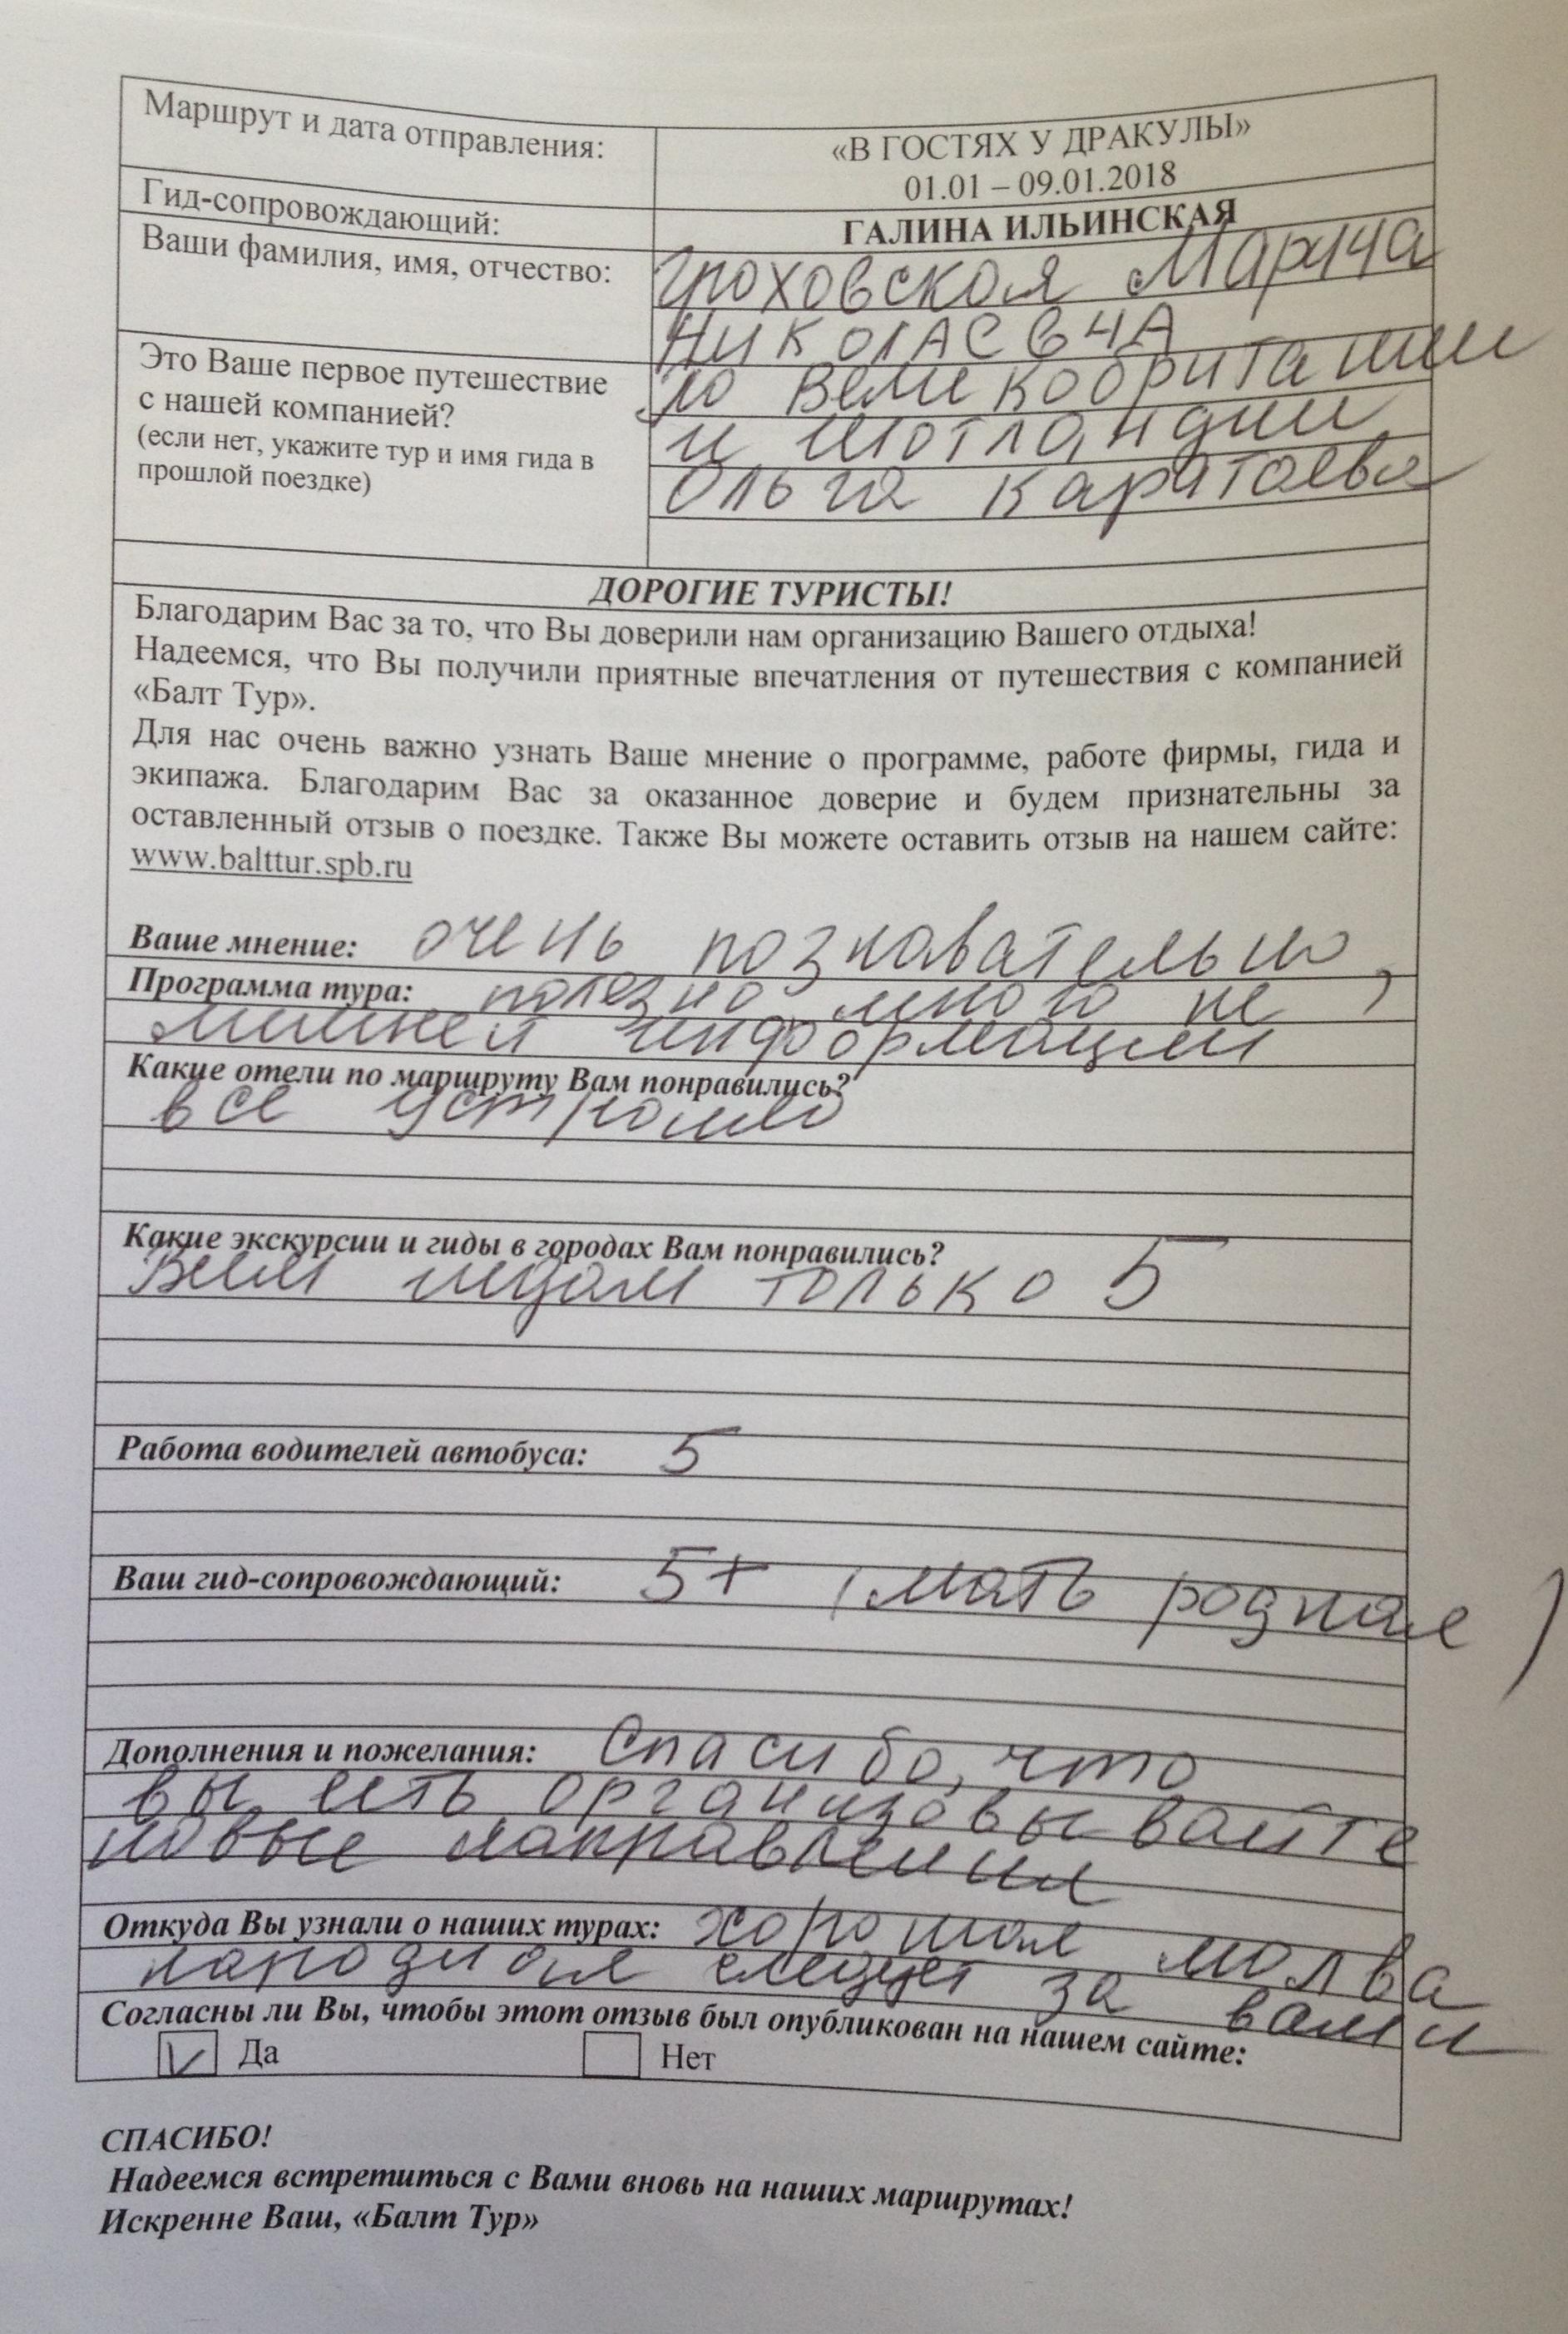 Маршрут и дата отправления:
«В ГОСТЯХ У ДРАКУЛЫ»
01.01 – 09.01.2018
Гид-сопровождающий:
ГАЛИНА ИЛЬИНСКАЯ
Ваши фамилия, имя, отчество:
Гроховская Марина
Николаевна
Это Ваше первое путешествие
с нашей компанией?
(если нет, укажите тур и имя гида в
прошлой поездке)
по Великобритании
и Шотландии
Ольга Каратаева
ДОРОГИЕ ТУРИСТЫ!
Благодарим Вас за то, что Вы доверили нам организацию Вашего отдыха!
Надеемся, что Вы получили приятные впечатления от путешествия с компанией
«Балт Тур».
Для нас очень важно узнать Ваше мнение о программе, работе фирмы, гида и
экипажа. Благодарим Вас за оказанное доверие и будем признательны за
оставленный отзыв о поездке. Также Вы можете оставить отзыв на нашем сайте:
www.balttur.spb.ru
Ваше мнение: очень познавательно,
Программа тура: полезно много не
лишней информации
Какие отели по маршруту Вам понравились?
все устроило
Какие экскурсии и гиды в городах Вам понравились?
Всем гидам только 5
Работа водителей автобуса: 5
Ваш гид-сопровождающий: 5+ (мать родная)
Дополнения и пожелания: Спасибо, что
вы есть организовывайте
новые направления
Откуда Вы узнали о наших турах: хорошая молва
народная следует за вами
Согласны ли Вы, чтобы этот отзыв был опубликован на нашем сайте:
Да Нет
СПАСИБО!
Надеемся встретиться с Вами вновь на наших маршрутах!
Искренне Ваш, «Балт Тур»